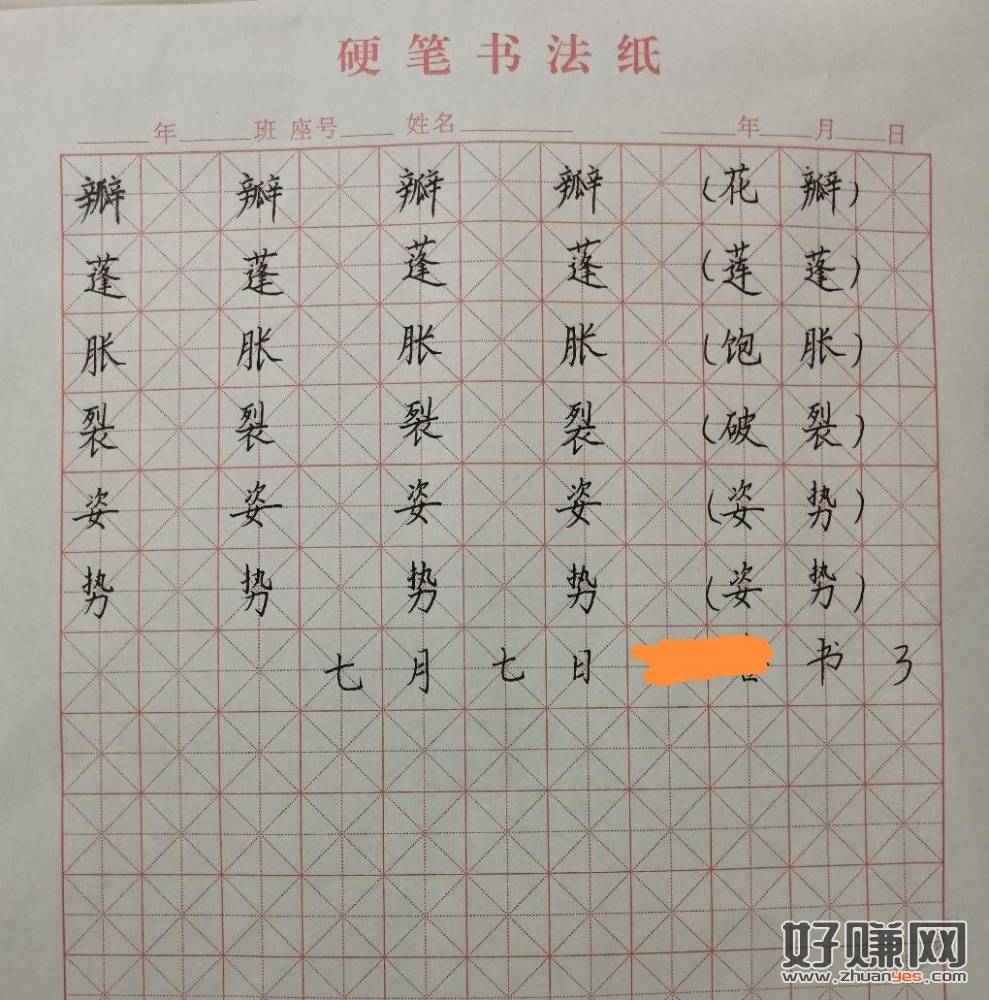 硬笔书法纸
年 班 座号 姓名 年 月 日
瓣 瓣 瓣 瓣 (花 瓣)
蓬 蓬 蓬 蓬 (莲 蓬)
胀 胀 胀 胀 (饱 胀)
裂 裂 裂 裂 (破 裂)
姿 姿 姿 姿 (姿 势)
势 势 势 势 (姿 势)
七 月 七 日 书
好赚网
www.zhuanyes.com